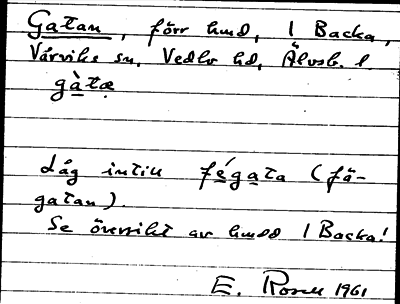 Gatan, förr hmd, 1 Backa,
Vårviks sn, Vedbo hd, Älvsb. l
gàtæ
Låg intill fégata (fä-
gatan).
Se översikt av hmdd 1 Backa!
E. Rosell 1961